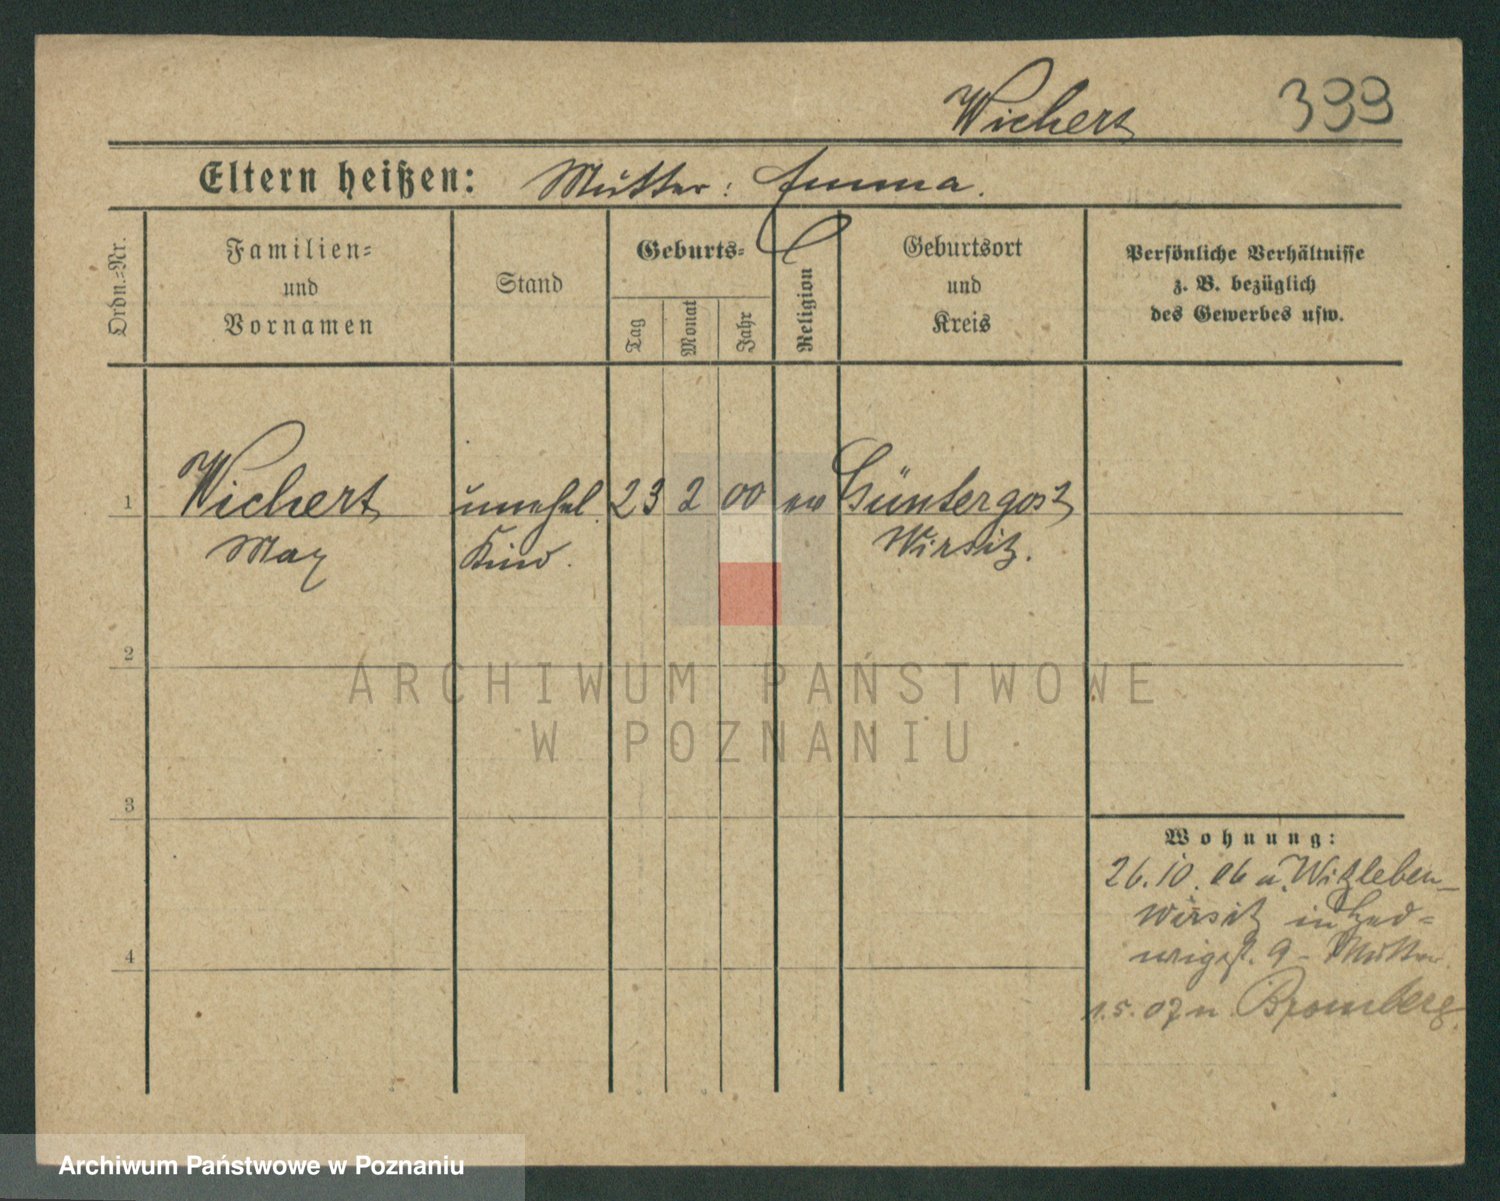 Wichert 399
Eltern heißen: Mutter: Emma.
Ordn.=Nr.
Familien=
und
Vornamen
Stand
Geburts=
Tag
Monat
Jahr
Religion
Geburtsort
und
Kreis
Persönliche Verhältnisse
z. B. bezüglich
des Gewerbes usw.
1 Wichert unehel. 23 2 00 ev Güntergost
Max Kind. Wirsitz.
2
ARCHIWUM PAŃSTWOWE
W POZNANIU
3
Wohnung:
26.10.06 a. Witzleben
Wirsitz in Hed=
wigst. 9 - Mutter
4
1.5.07 n. Bromberg.
Archiwum Państwowe w Poznaniu